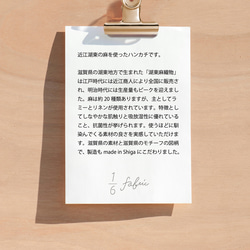 近江湖東の麻を使ったハンカチです。
滋賀県の湖東地方で生まれた「湖東麻織物」
は江戸時代には近江商人により全国に販売さ
れ、明治時代には生産量もピークを迎えまし
た。麻は約 20 種類ありますが、主としてラ
ミーとリネンが使用されています。特徴とし
てしなやかな肌触りと吸放湿性に優れている
こと、抗菌性が挙げられます。使うほどに馴
染んでくる素材の良さを実感していただけま
す。滋賀県の素材と滋賀県のモチーフの図柄
で、製造も made in Shiga にこだわりました。
1/6 fabric